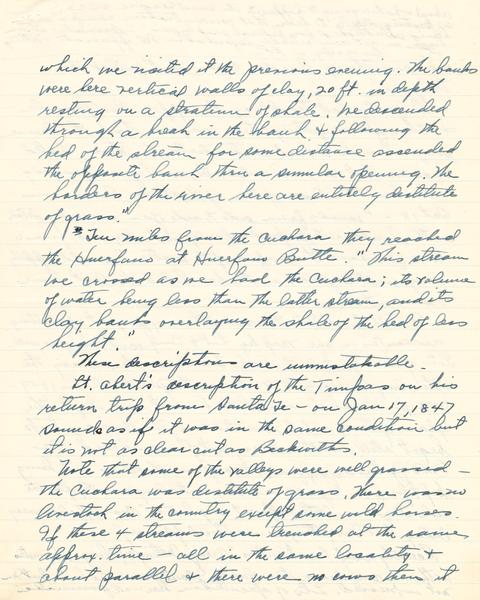 which we visited it the previous evening. The banks
were here vertical walls of clay, 20 ft. in depth
resting on a stratum of shale. We descended
through a break in the bank & following the
bed of the stream for some distance assended
the opposite bank thru a similar opening. The
borders of the river here are entirely distitute
of grass."
"Ten miles from the Cuchara they reached
the Huerfano at Huerfano Butte. "This stream
we crossed as we had the Cuchara; its volume
of water being less than the latter stream, and its
clay banks overlaying the shale of the bed of less
height."
These descriptions are unmistakable.
Lt. Abert's description of the Timpas on his
return trip from Santa Fe - on Jan 17, 1847
sounds as if it was in the same condition but
it is not as clear cut as Beckwiths.
Note that some of the valleys were well grassed -
the Cuchara was distitute of grass. There was no
livestock in the country except some wild horses.
If these 4 streams were trenched at the same
approx. time - all in the same locality &
about parallel & there were no cows then it